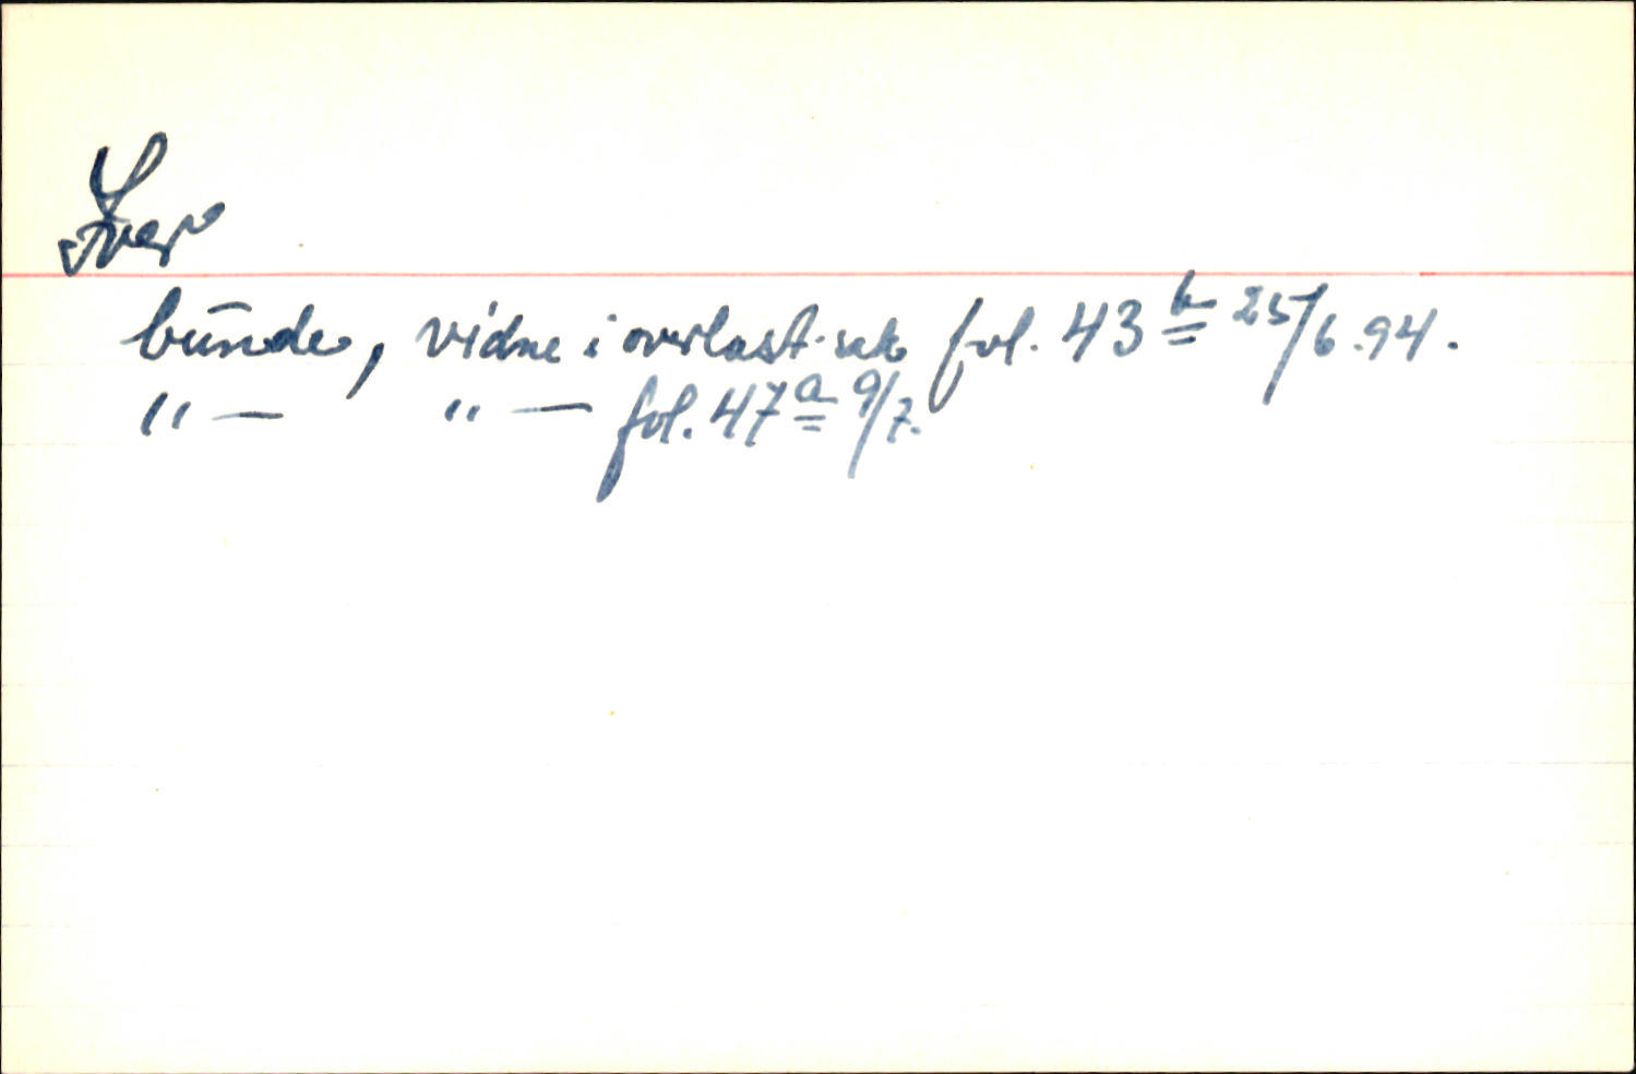 Iver
bunde, vidne i overlast-sak fol. 43 b 25/6.94.
"— "— fol. 47 a 9/7.